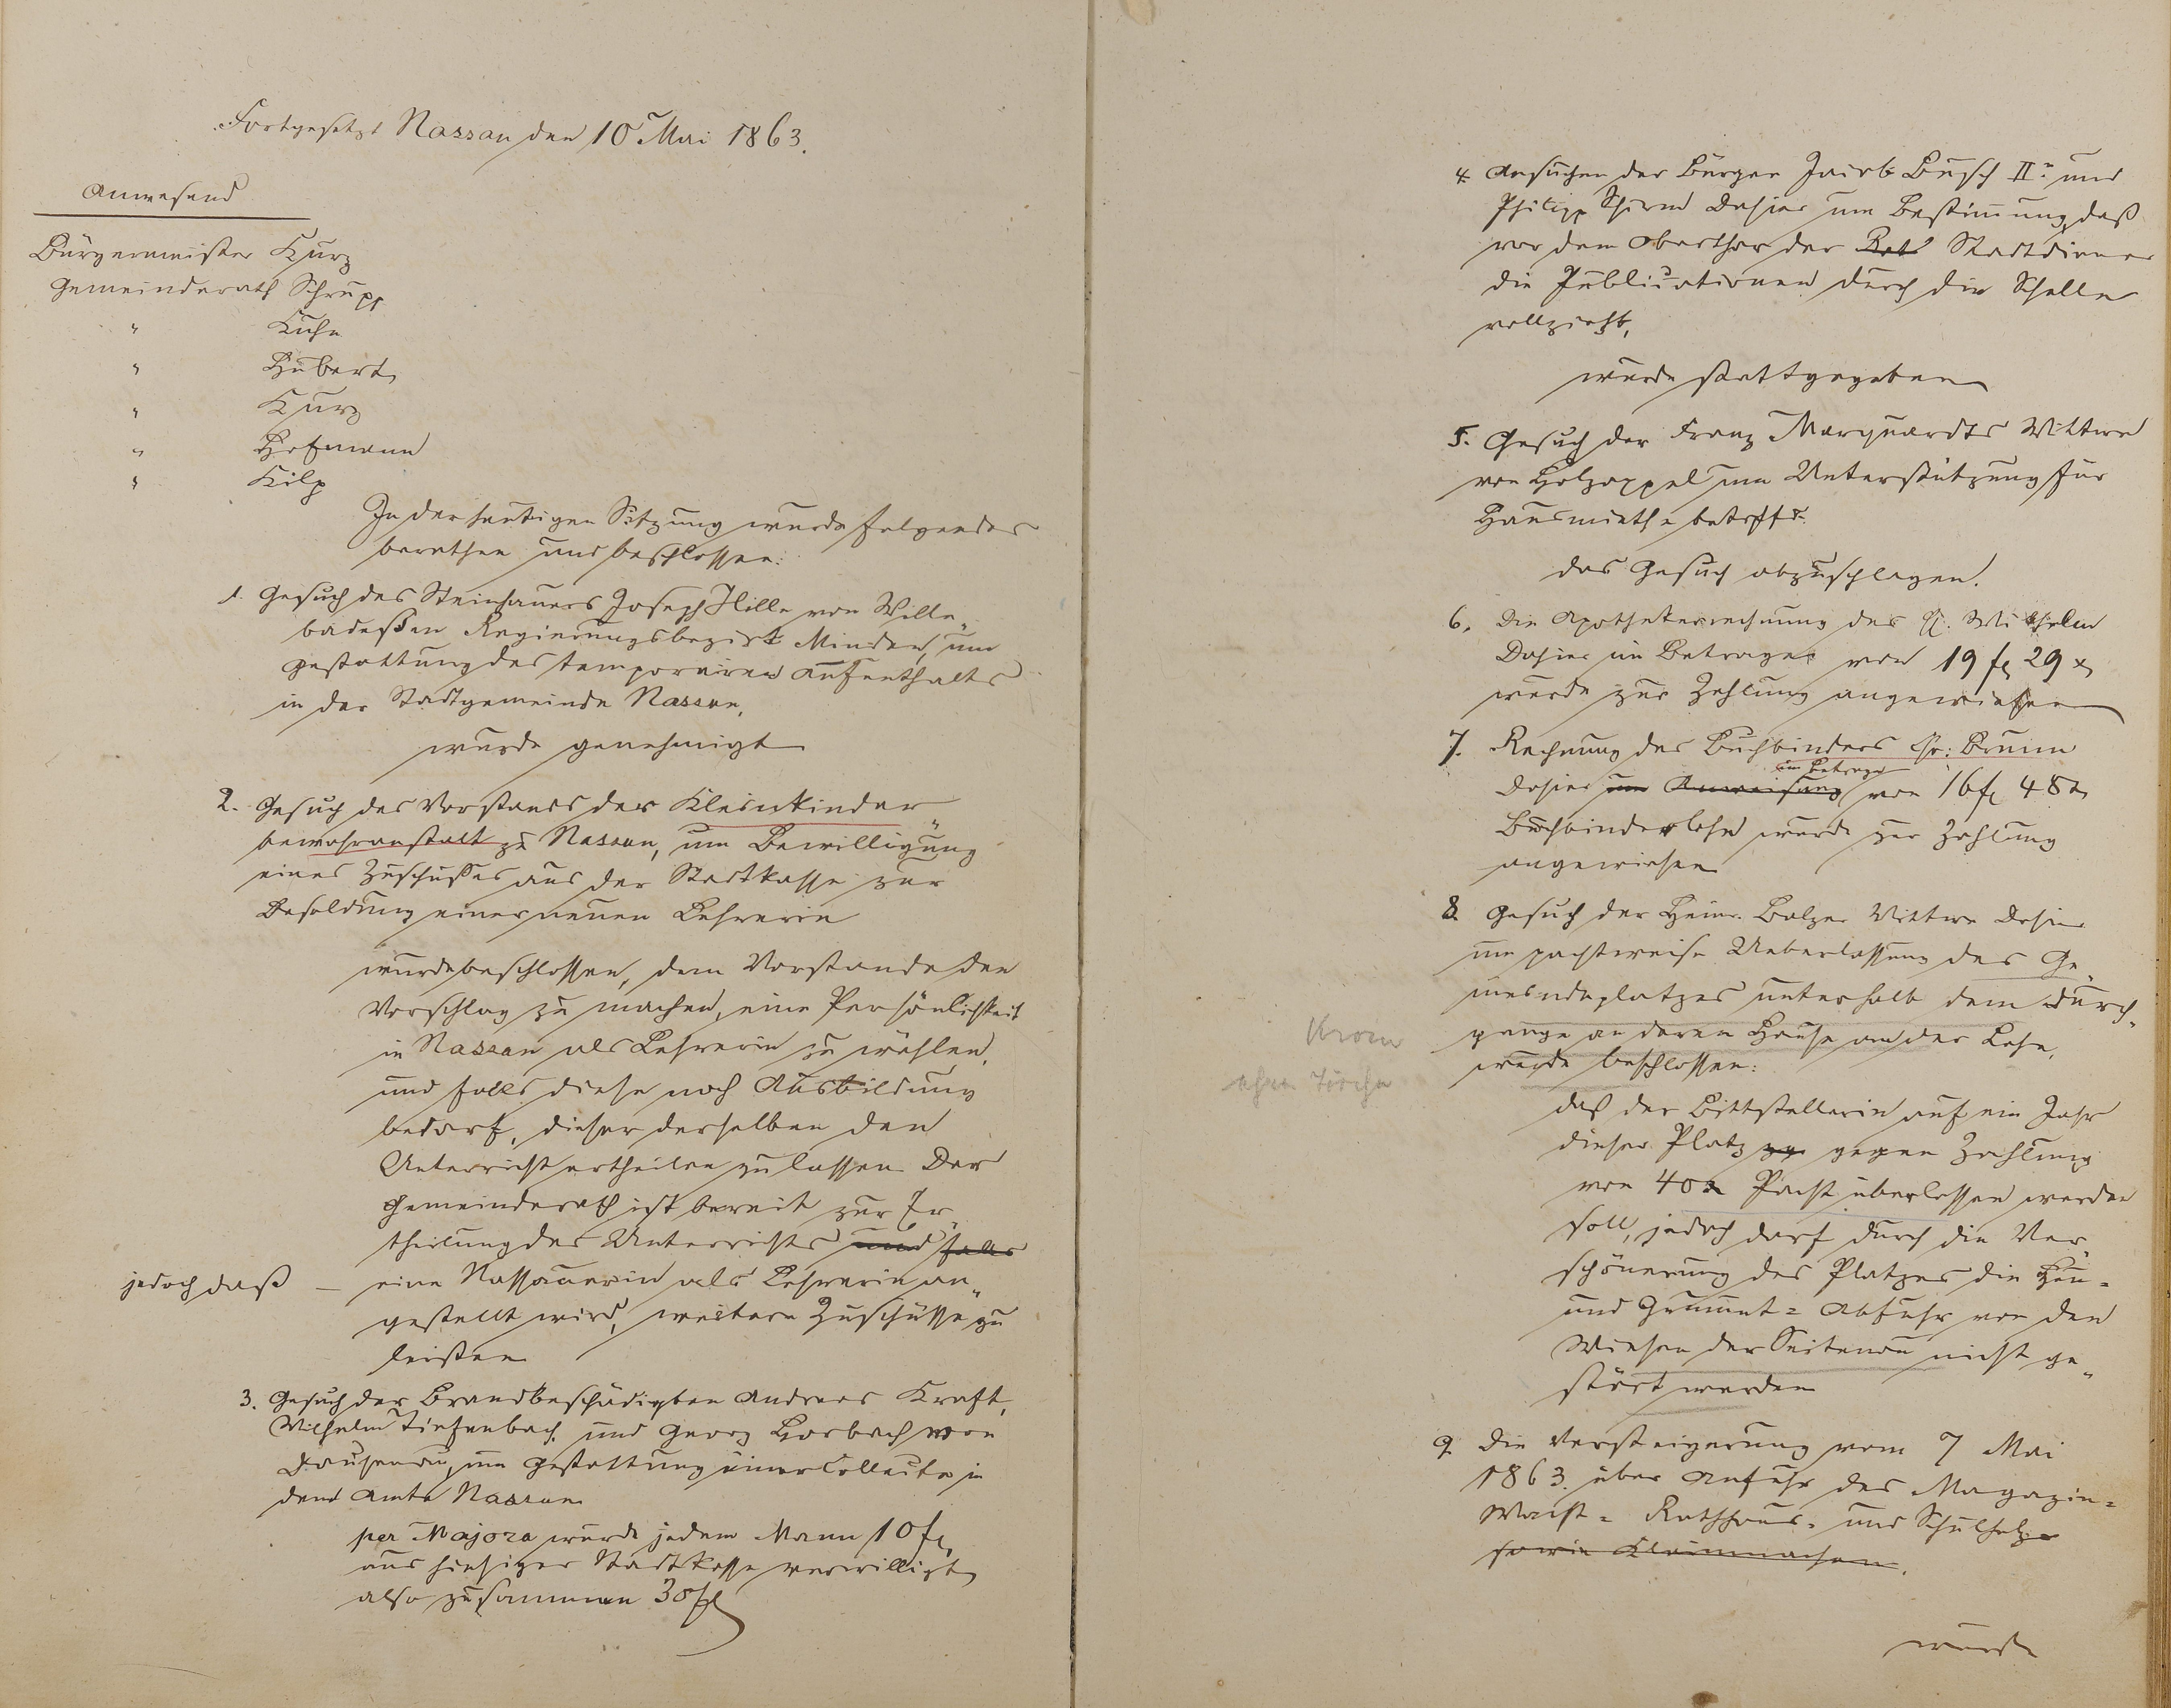 Fortgesetzt Nassau den 10 Mai 1863.
Anwesend
Bürgermeister Kurz
Gemeinderath Schrupp
" Kuhn
" Hubert
" Kurz
" Hofmann
" Kilp
In der heutigen Sitzung wurde folgendes
berathen und beschlossen:
1. Gesuch des Steinhauers Joseph Hille von Wille„
badeßen Regierungsbezirk Minden, um
Gestattung des temporairen Aufenthalts
in der Stadtgemeinde Nassau,
wurde genehmigt
2. Gesuch des Vorstands der Kleinkinder„
bewahranstalt zu Nassau, um Bewilligung
eines Zuschußes aus der Stadtkasse zur
Besoldung einer neuen Lehrerin
wurde beschlossen, dem Vorstande den
Vorschlag zu machen, eine Persönlichkeit
in Nassau als Lehrerin zu wählen,
und falls diese noch Ausbildung
bedarf, dieser derselben den
Unterricht ertheilen zu lassen. Der
Gemeinderath ist bereit zur Er„
theilung des Unterrichts und falls
jedoch daß — eine Nassauerin als Lehrerin an„
gestellt wird, weitere Zuschüsse zu
leisten
3. Gesuch der Brandbeschädigten Andreas Kraft,
Wilhelm Tiefenbach und Georg Horbach von
Dausenau, um Gestattung einer Collecte in
dem Amte Nassau
per Majora wurde jedem Mann 10 fl,
aus hiesiger Stadtkasse verwilligt,
also zusammen 30 fl
4. Ansuchen der Bürger Jacob Busch IIr und
Philipp Schirm dahier um Bestimmung, daß
vor dem Oberthor der Rat Stadtdiener
die Publicationen durch die Schelle
vollzieht,
wurde stattgegeben
5. Gesuch der Franz Marquardts Wittwe
von Holzappel um Unterstützung für
Hausmiethe betrfft.
das Gesuch abzuschlagen.
6. Die Apothekerrechnung des H. Wilhelm
dahier im Betrage von 19 fl 29 x
wurde zur Zahlung angewiesen
7. Rechnung des Buchbinders Chr: Brunn
im Betrage
dahier um Anweisung von 16 fl 48 x
Buchbinderlohn wurde zur Zahlung
angewiesen
8. Gesuch der Heinr. Balzer Wittwe dahier
um pachtweise Ueberlassung des Ge„
meindeplatzes unterhalb dem Durch„
gange an deren Hause an der Lahn,
wurde beschlossen:
daß der Bittstellerin auf ein Jahr
dieser Platz zu gegen Zahlung
von 40 x Pacht überlassen werden
soll, jedoch darf durch die Ver„
schönerung des Platzes die Heu=
und Grummet= Abfuhr von den
Wiesen der Seitenau nicht ge„
stört werden
9. Die Versteigerung vom 7 Mai
1863. über Anfuhr des Magazin=
Wacht= Rathhaus= und Schulholz=
sowie Kleinmachen.
wurde